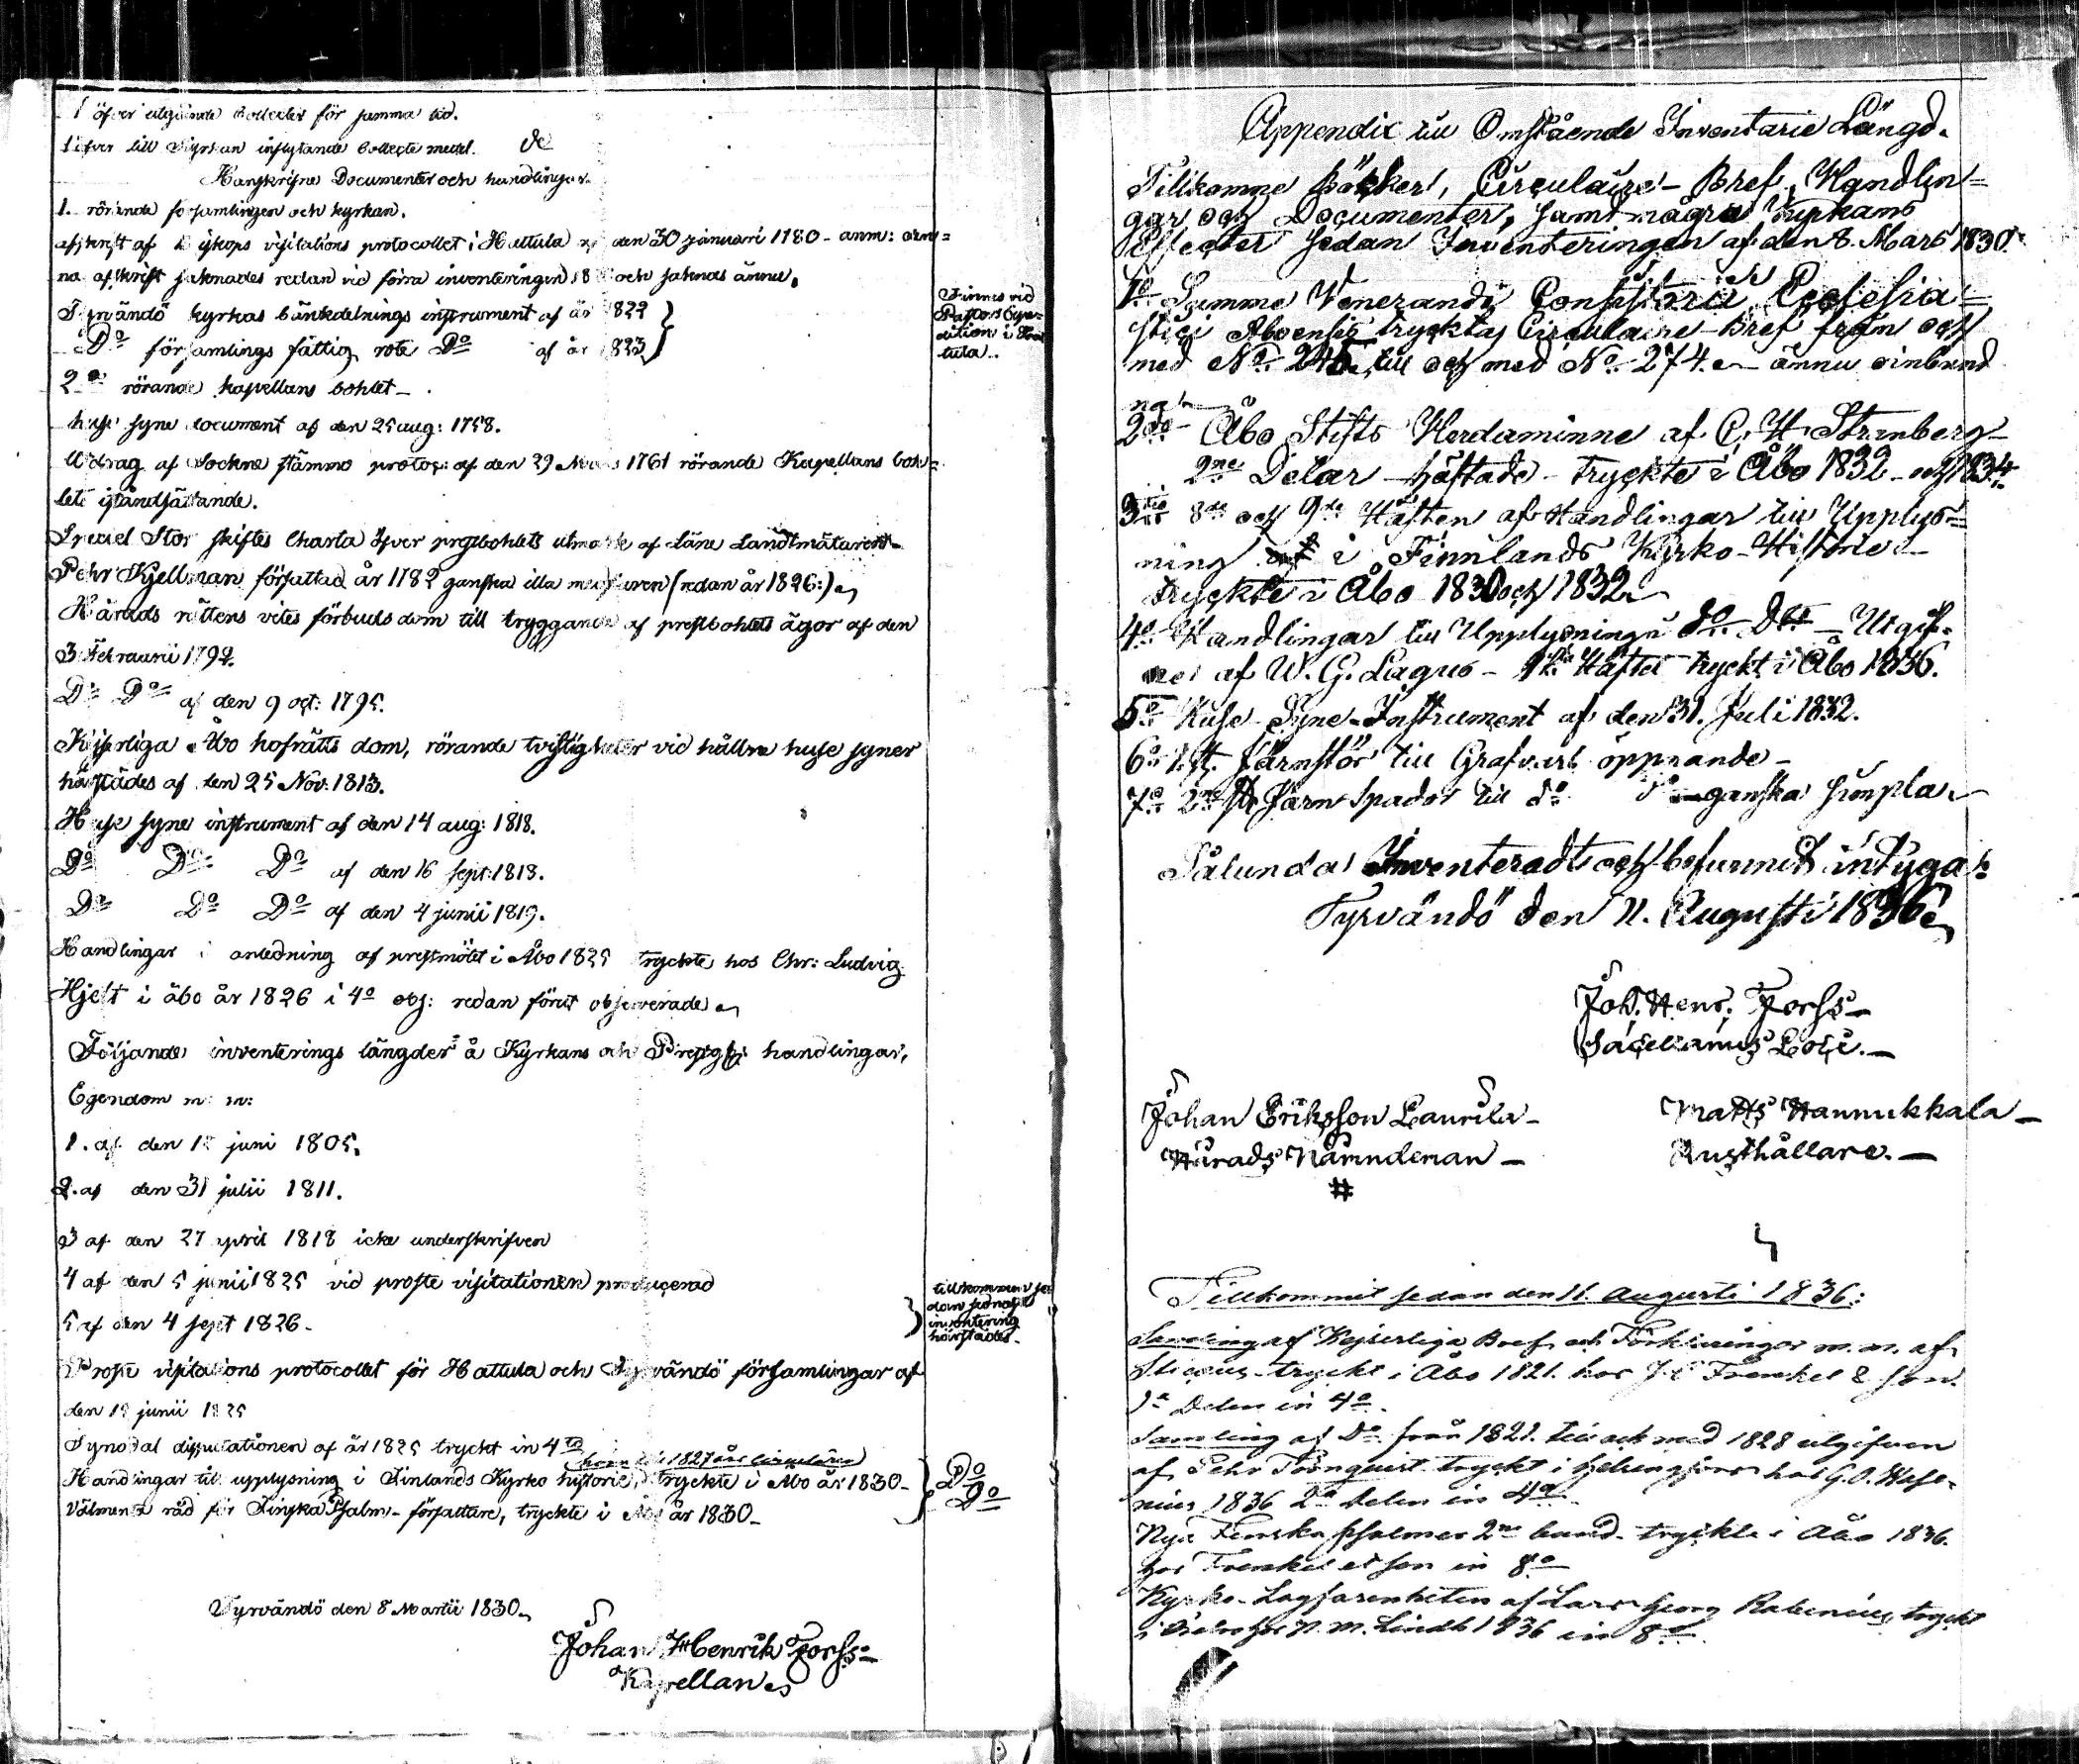 1 öfver utgående Collecter för samma tid.
1 öfver till Kyrkan inflytande Collecte medel. do
Hanskrifne Documenter och handlingar.
1. rörande församlingen och kyrkan.
afskrift af Biskops visitations protocollet i Hattula den 30 januari 1780 - anm: den=
na afskrift saknades redan vid förra inventeringen 18 och saknas ännu.
Tyrvändö kyrkas bänkdelnings instrument af år 1822
Do församlings fattig rote Do af år 1823
Finnes vid
Pastors Expe-
dition i Hat
tula..
2o rörande kapellans bohlet -
huse syne document af den 25 aug: 1758.
Utdrag af Sockne stämmo protoc: af den 29 Mars 1761 rörande Kapellans boh=
lets iståndsättande.
Special Stor skiftes Charta öfver prestbohlets utmark af Läne Landtmätaren
Pehr Kjellman författad år 1782 ganska illa medfaren (redan år 1826:)
Härads rättens vites förbuds dom till tryggande af prestbohlets ägor af den
3 Februarii 1792.
Do Do af den 9 oct: 1795.
Kejserliga Åbo hofrätts dom, rörande tvistigheter vid hållne huse syner
härstädes af den 25 Nov: 1813.
Huse syne instrument af den 14 aug: 1818.
Do Do Do af den 16 Sept: 1818.
Do Do Do af den 4 junii 1819.
Handlingar i anledning af prestmötet i Åbo 1825 tryckte hos Chr: Ludvig
Hjelt i åbo år 1826 i 4o obs: redan förut observerade
Följande inventerings längder å Kyrkans och handlingar,
Egendom m: m:
1. af den juni 1805.
2. af den 31 julii 1811.
3 af den 27 april 1818 icke underskrifven
4 af den 5 junii 1825 vid proste visitationen producerad
5 af den 4 sept 1826 -
tillkommen se
dan sednaste
inventering
härstädes -
Proste visitations protocollet för Hattula och Tyrvändö församlingar af
den 15 junii 1825
Synodal disputationen af år 1825 tryckt in 4to
1827 års
Handlingar till upplysning i Finlands Kyrko historie, tryckte i Åbo år 1830 - Do
Välmenta råd för Finska Psalm-författare, tryckte i Åbo år 1830 - Do
Tyrvändö den 8 Martii 1830
Johan Henrik Forss
Kapellan
Appendix till Omstående Inventarie Längd.
Tillkomne Böcker, Circulaire-Bref, Handlin=
gar och Documenter, samt några Kyrkans
Effecter sedan Inventeringen af den 8. Mars 1830.
1o Summe Venerandi Consistorii Ecclesia=
stici Aboensis tryckta Circulaire-Bref från och
med No. 245. till och med No. 274. ännu oinbund
na
2do Åbo Stifts Herdaminne af C. H. Strandberg
2ne Delar - häftade - tryckte i Åbo 1832 - och 1834.
3tio 8de och 9de Häften af Handlingar till Upplys=
ning i Finnlands Kyrko-Historie -
tryckte i Åbo 1830 och 1832
4o Handlingar till Upplysning Do Do - Utgif-
ne af W. G. Lagus - 1sta Häftet tryckt i Åbo 1836.
5o Huse Syne-Instrument af den 31. Juli 1832.
6o 1. st. Järnstör till Grafvars öppnande -
7o 2ne st. Järn Spador till do ganska simpla
Sålunda Inventeradt och befunnit intygas
Tyrvändö den 11. Augusti 1836
Joh. Henr. Forss
Sacellanus Loci.
Johan Eriksson Laurila - Matts Hannukkala -
Härads Nämndeman - Rusthållare. -
Tillkommit sedan den 11. Augusti 1836:
Samling af Kejserliga Bref och Förklaringar m. m. af
tryckt i Åbo 1821. hos J. C. Frenckel & Son.
1a Delen in 4o.
Samling af Do från 1821. till och med 1828 utgifven
af Pehr Törnquist tryckt i Helsingfors hos G. O. Wase-
nius 1836 2a delen in 4o.
Nya Finska Psalmer 2ne band - tryckte i Åbo 1836.
hos Frenckel et Son in 8o
Kyrko-Lagfarenheten af Lars Georg Rabenius tryckt
i Örebro hos N. M. Lindh 1836 in 8o.